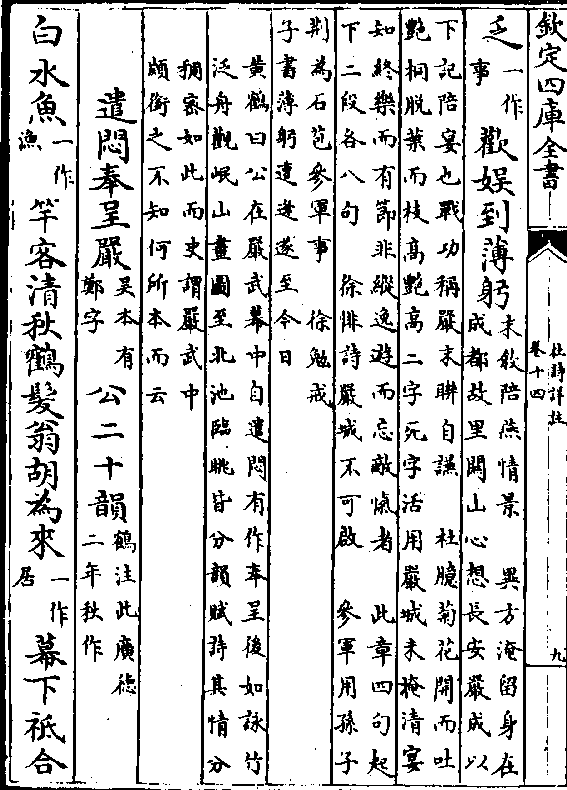 欽定四庫全書
杜詩詳註
卷十四
九
乏一作事歡娛到薄躬末敘陪燕情景 異方淹留身在
成都故里關山心想長安嚴成以
下記陪宴也戰功稱嚴末聯自謙 杜臆菊花開而吐
艷桐脫葉而枝高艷高二字死字活用嚴城未掩清宴
如終樂而有節非縱逸遊而忘敵愾者 此章四句起
下二段各八句 徐悱詩嚴城不可啟 參軍用孫子
荆為石苞參軍事 徐勉戒
子書薄躬遭逢遂至今日
黃鶴曰公在嚴武幕中自遣悶有作奉呈後如詠竹
泛舟觀岷山畫圖至北池臨眺皆分韻賦詩其情分
稠密如此而史謂嚴武中
頗銜之不知何所本而云
遣悶奉呈嚴吳本有鄭字公二十韻鶴注此廣德二年秋作
白水魚一作漁竿客清秋鶴髮翁胡為來一作居幕下祗合